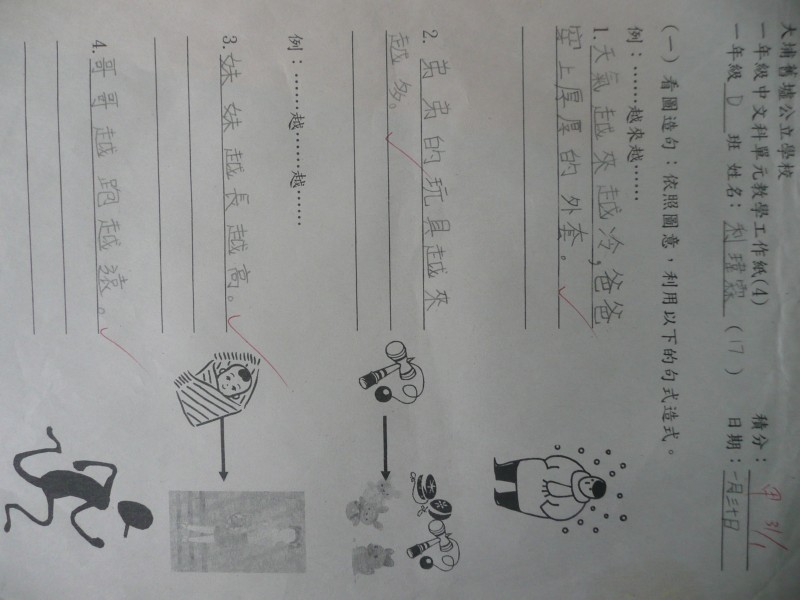 大埔舊墟公立學校
一年級中文科單元教學工作紙(4) 積分：甲 31/1
一年級 D 班 姓名： (17) 日期：一月三十日
(一) 看圖造句：依照圖意，利用以下的句式造式。
例：……越來越……
1. 天氣越來越冷，爸爸
穿上厚厚的外套。
2. 弟弟的玩具越來
越多。
例：……越……越……
3. 妹妹越長越高。
4. 哥哥越跑越遠。